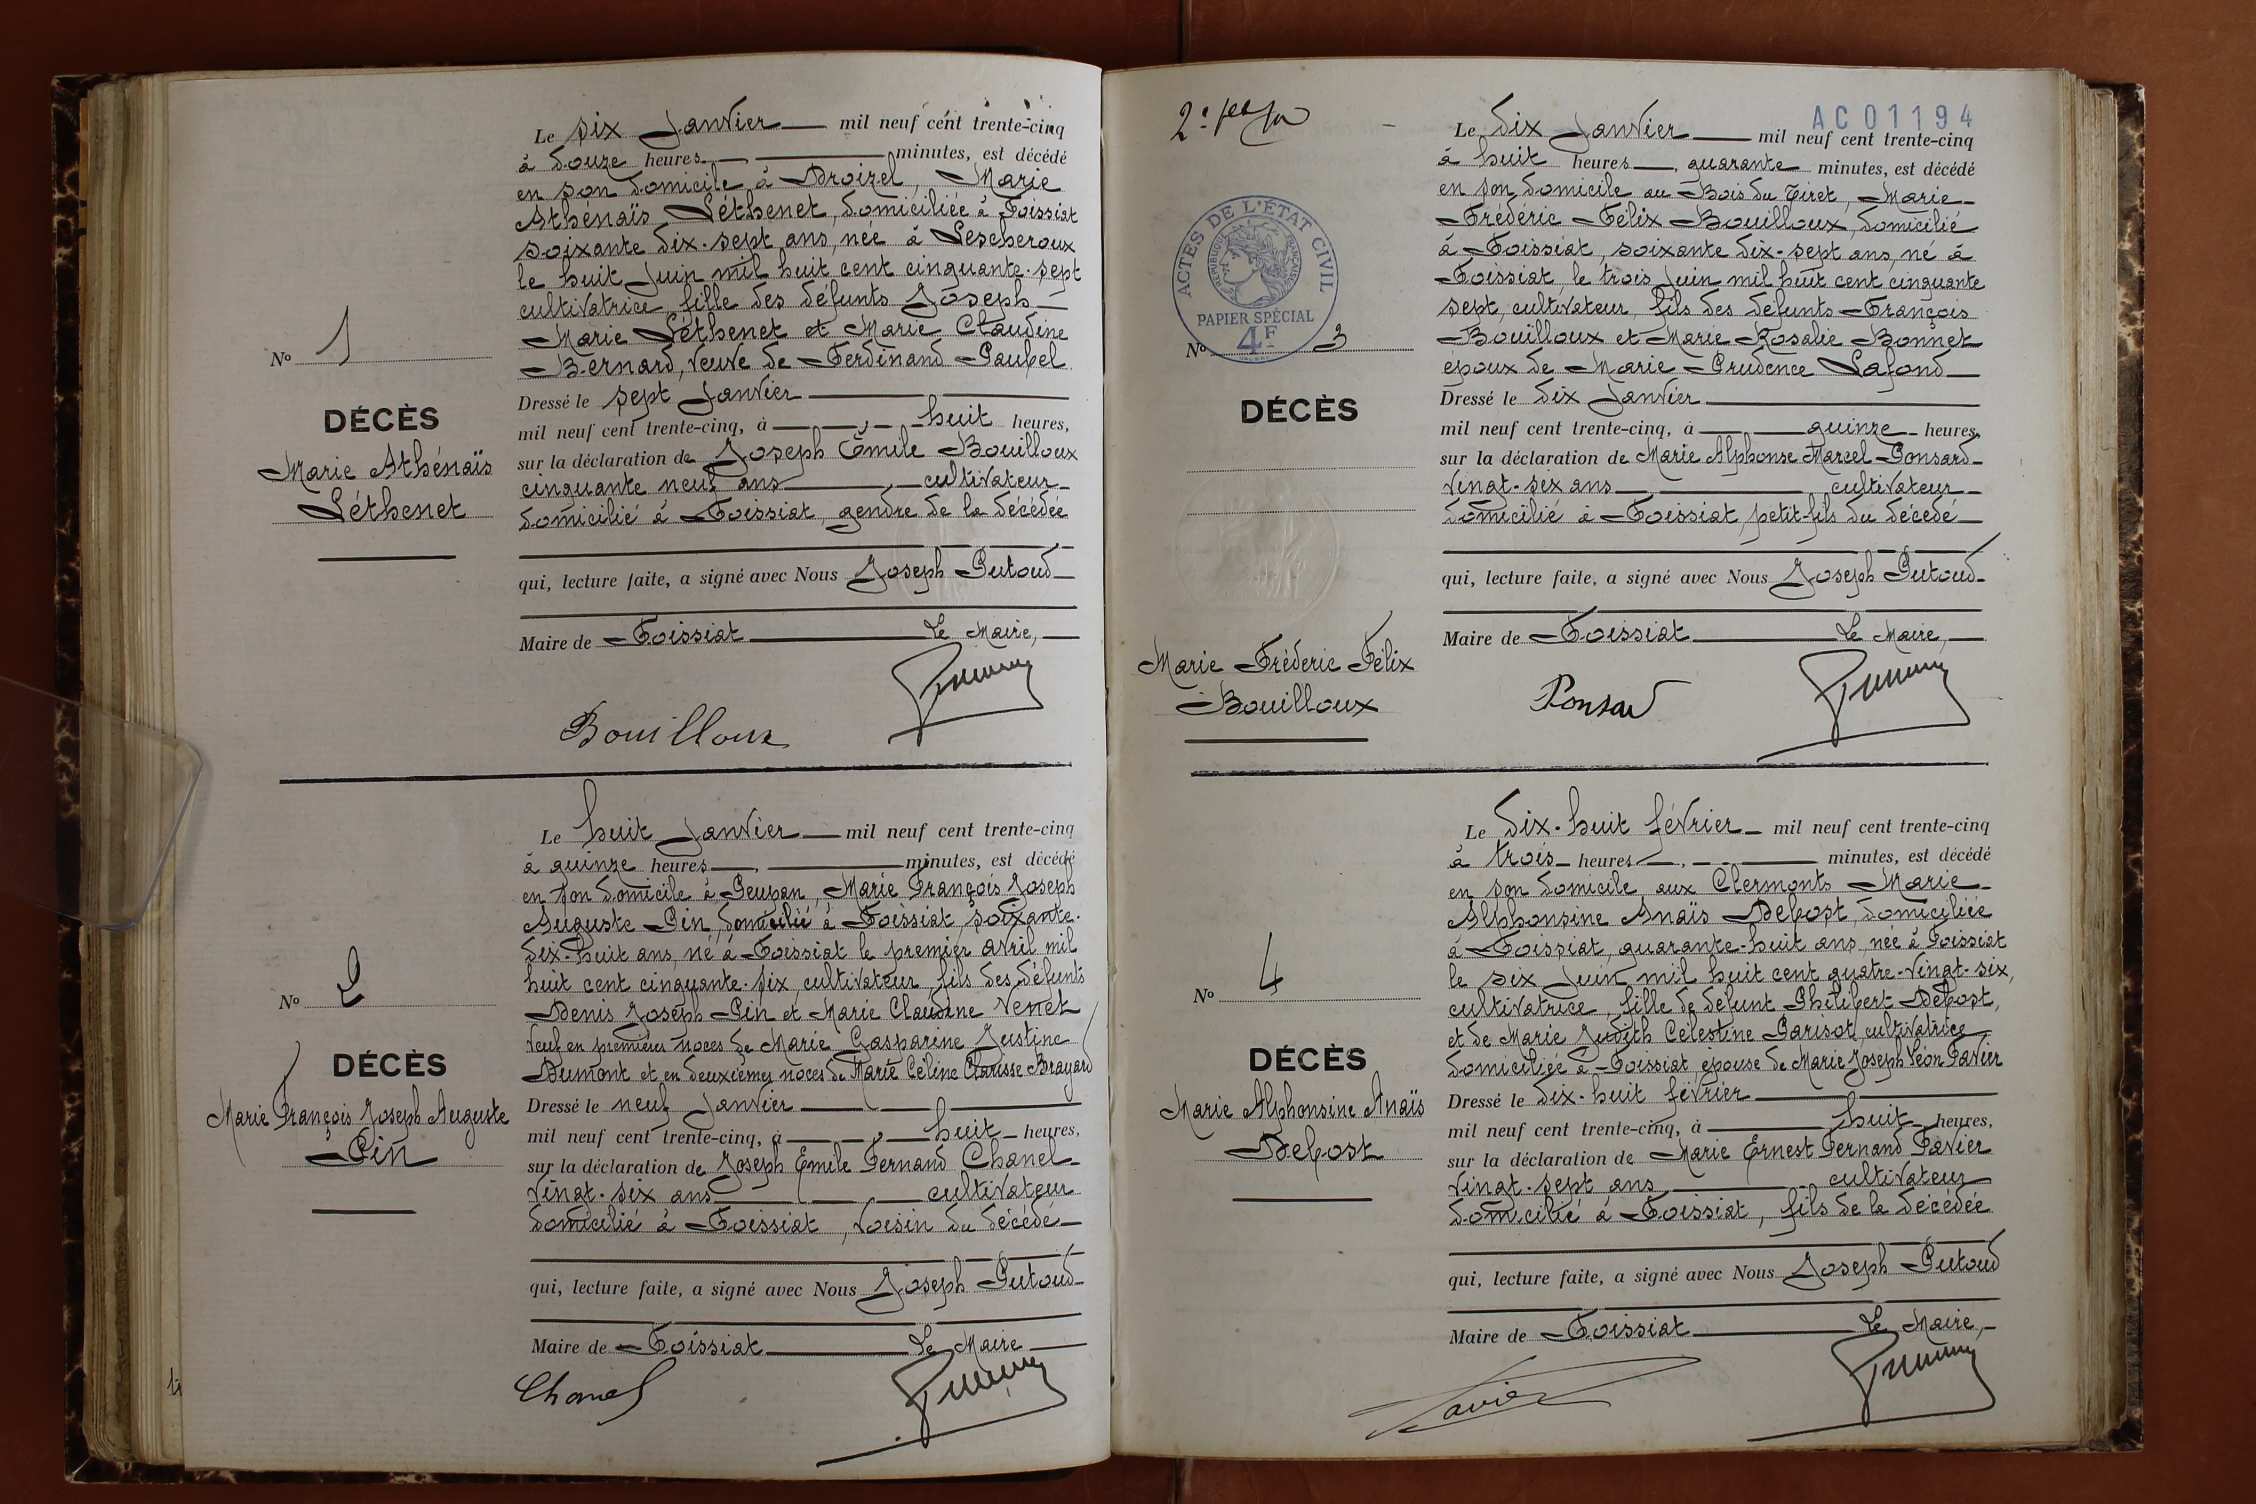 Le six Janvier mil neuf cent trente-cinq
à douze heures, minutes, est décédé
en son domicile à Droizel, Marie
Athénaïs Léthenet, domiciliée à Foissiat
soixante dix-sept ans, née à Lescheroux
le huit Juin mil huit cent cinquante-sept
cultivatrice, fille des défunts Joseph
Marie Léthenet et Marie Claudine
Bernard, veuve de Ferdinand Paubel
No 1
DÉCÈS
Marie Athénaïs
Léthenet
Dressé le sept Janvier
mil neuf cent trente-cinq, à huit heures,
sur la déclaration de Joseph Émile Bouilloux
cinquante neuf ans, cultivateur
domicilié à Foissiat, gendre de la décédée
qui, lecture faite, a signé avec Nous Joseph Putoud
Maire de Foissiat Le Maire,
Bouilloux
Le huit Janvier mil neuf cent trente-cinq
à quinze heures, minutes, est décédé
en son domicile à Peuzan, Marie François Joseph
Auguste Pin, domicilié à Foissiat, soixante-
dix-huit ans, né à Foissiat le premier avril mil
huit cent cinquante-six, cultivateur, fils des défunts
Denis Joseph Pin et Marie Claudine Venet
Veuf en premières noces de Marie Gasparine Justine
Dumont et en deuxièmes noces de Marie Céline Clarisse Brayard
No 2
DÉCÈS
Marie François Joseph Auguste
Pin
Dressé le neuf Janvier
mil neuf cent trente-cinq, à huit heures,
sur la déclaration de Joseph Émile Fernand Chanel
vingt-six ans, cultivateur
domicilié à Foissiat, voisin du décédé
qui, lecture faite, a signé avec Nous Joseph Putoud
Maire de Foissiat Le Maire
Chanel
AC01194
Le dix Janvier mil neuf cent trente-cinq
à huit heures, quarante minutes, est décédé
en son domicile au Bois du Tiret, Marie
Frédéric Félix Bouilloux, domicilié
à Foissiat, soixante dix-sept ans, né à
Foissiat, le trois Juin mil huit cent cinquante
sept, cultivateur, fils des défunts François
Bouilloux et Marie Rosalie Bonnet
époux de Marie Prudence Lafond
ACTES DE L'ÉTAT CIVIL
RÉPUBLIQUE FRANÇAISE
PAPIER SPÉCIAL
4F
No 3
DÉCÈS
Marie Fréderic Félix
Bouilloux
Dressé le dix Janvier
mil neuf cent trente-cinq, à quinze heures,
sur la déclaration de Marie Alphonse Marcel Ponsard
vingt-six ans, cultivateur
domicilié à Foissiat, petit-fils du décédé
qui, lecture faite, a signé avec Nous Joseph Putoud
Maire de Foissiat Le Maire,
Ponsard
Le dix-huit février mil neuf cent trente-cinq
à trois heures, minutes, est décédé
en son domicile aux Clermonts Marie
Alphonsine Anaïs Debost, domiciliée
à Foissiat, quarante-huit ans, née à Foissiat
le six Juin mil huit cent quatre-vingt-six,
cultivatrice, fille de défunt Philibert Debost,
et de Marie Judith Célestine Parisot, cultivatrice
domiciliée à Foissiat, épouse de Marie Joseph Léon Favier
No 4
DÉCÈS
Marie Alphonsine Anaïs
Debost
Dressé le dix-huit février
mil neuf cent trente-cinq, à huit heures,
sur la déclaration de Marie Ernest Fernand Favier
vingt-sept ans, cultivateur
domicilié à Foissiat, fils de la décédée
qui, lecture faite, a signé avec Nous Joseph Putoud
Maire de Foissiat Le Maire,
Favier